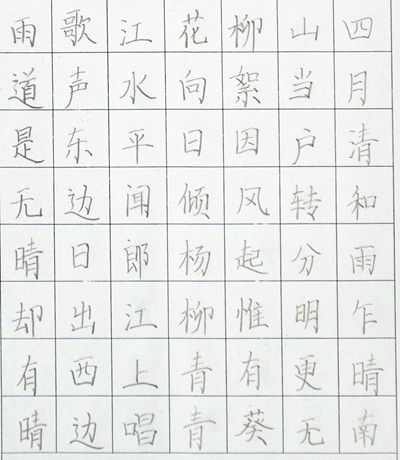 四月清和雨乍晴南
山当户转分明更无
柳絮因风起惟有葵
花向日倾杨柳青青
江水平闻郎江上唱
歌声东边日出西边
雨道是无晴却有晴